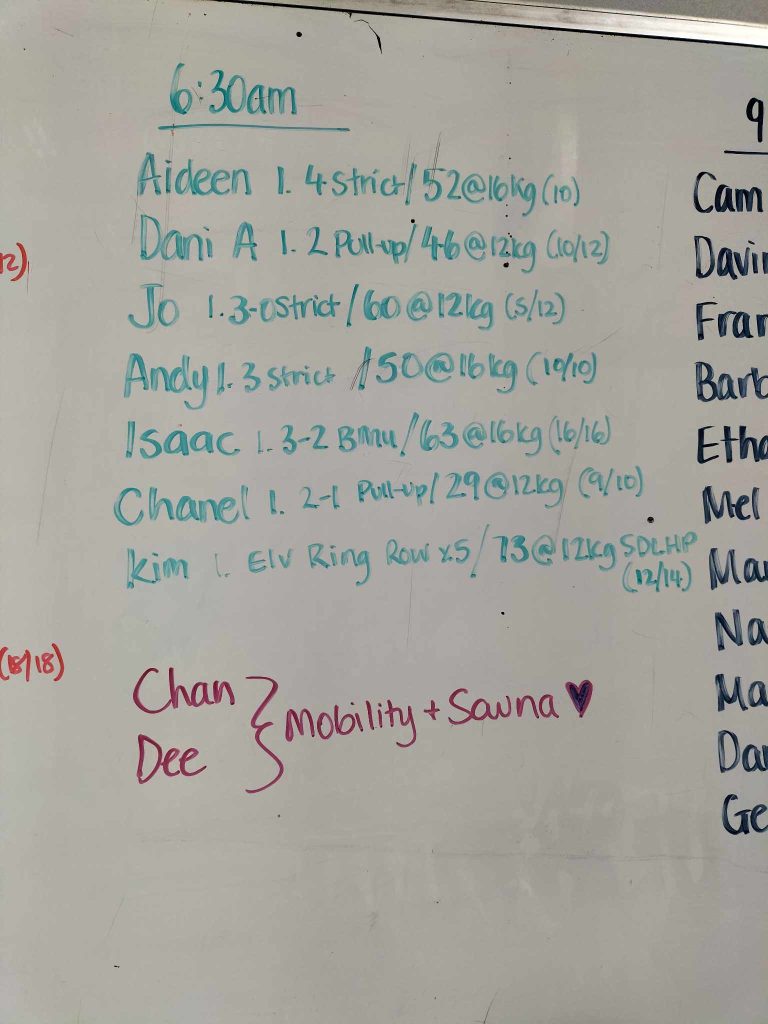 6:30am
Aideen 1. 4 strict/52@16kg (10)
Dani A 1. 2 Pull-up/46@12kg (10/12)
Jo 1. 3-0 strict/60@12kg (5/12)
Andy 1. 3 strict/50@16kg (10/10)
Isaac 1. 3-2 BMU/63@16kg (16/16)
Chanel 1. 2-1 Pull-up/29@12kg (9/10)
Kim 1. Elv Ring Row x5/73@12kg SDLHP
(12/14)
Chan
Dee
Mobility + Sauna ♥
12)
(18/18)
9
Cam
Davin
Fran
Barb
Etha
Mel
Mar
Na
Ma
Dan
Ge